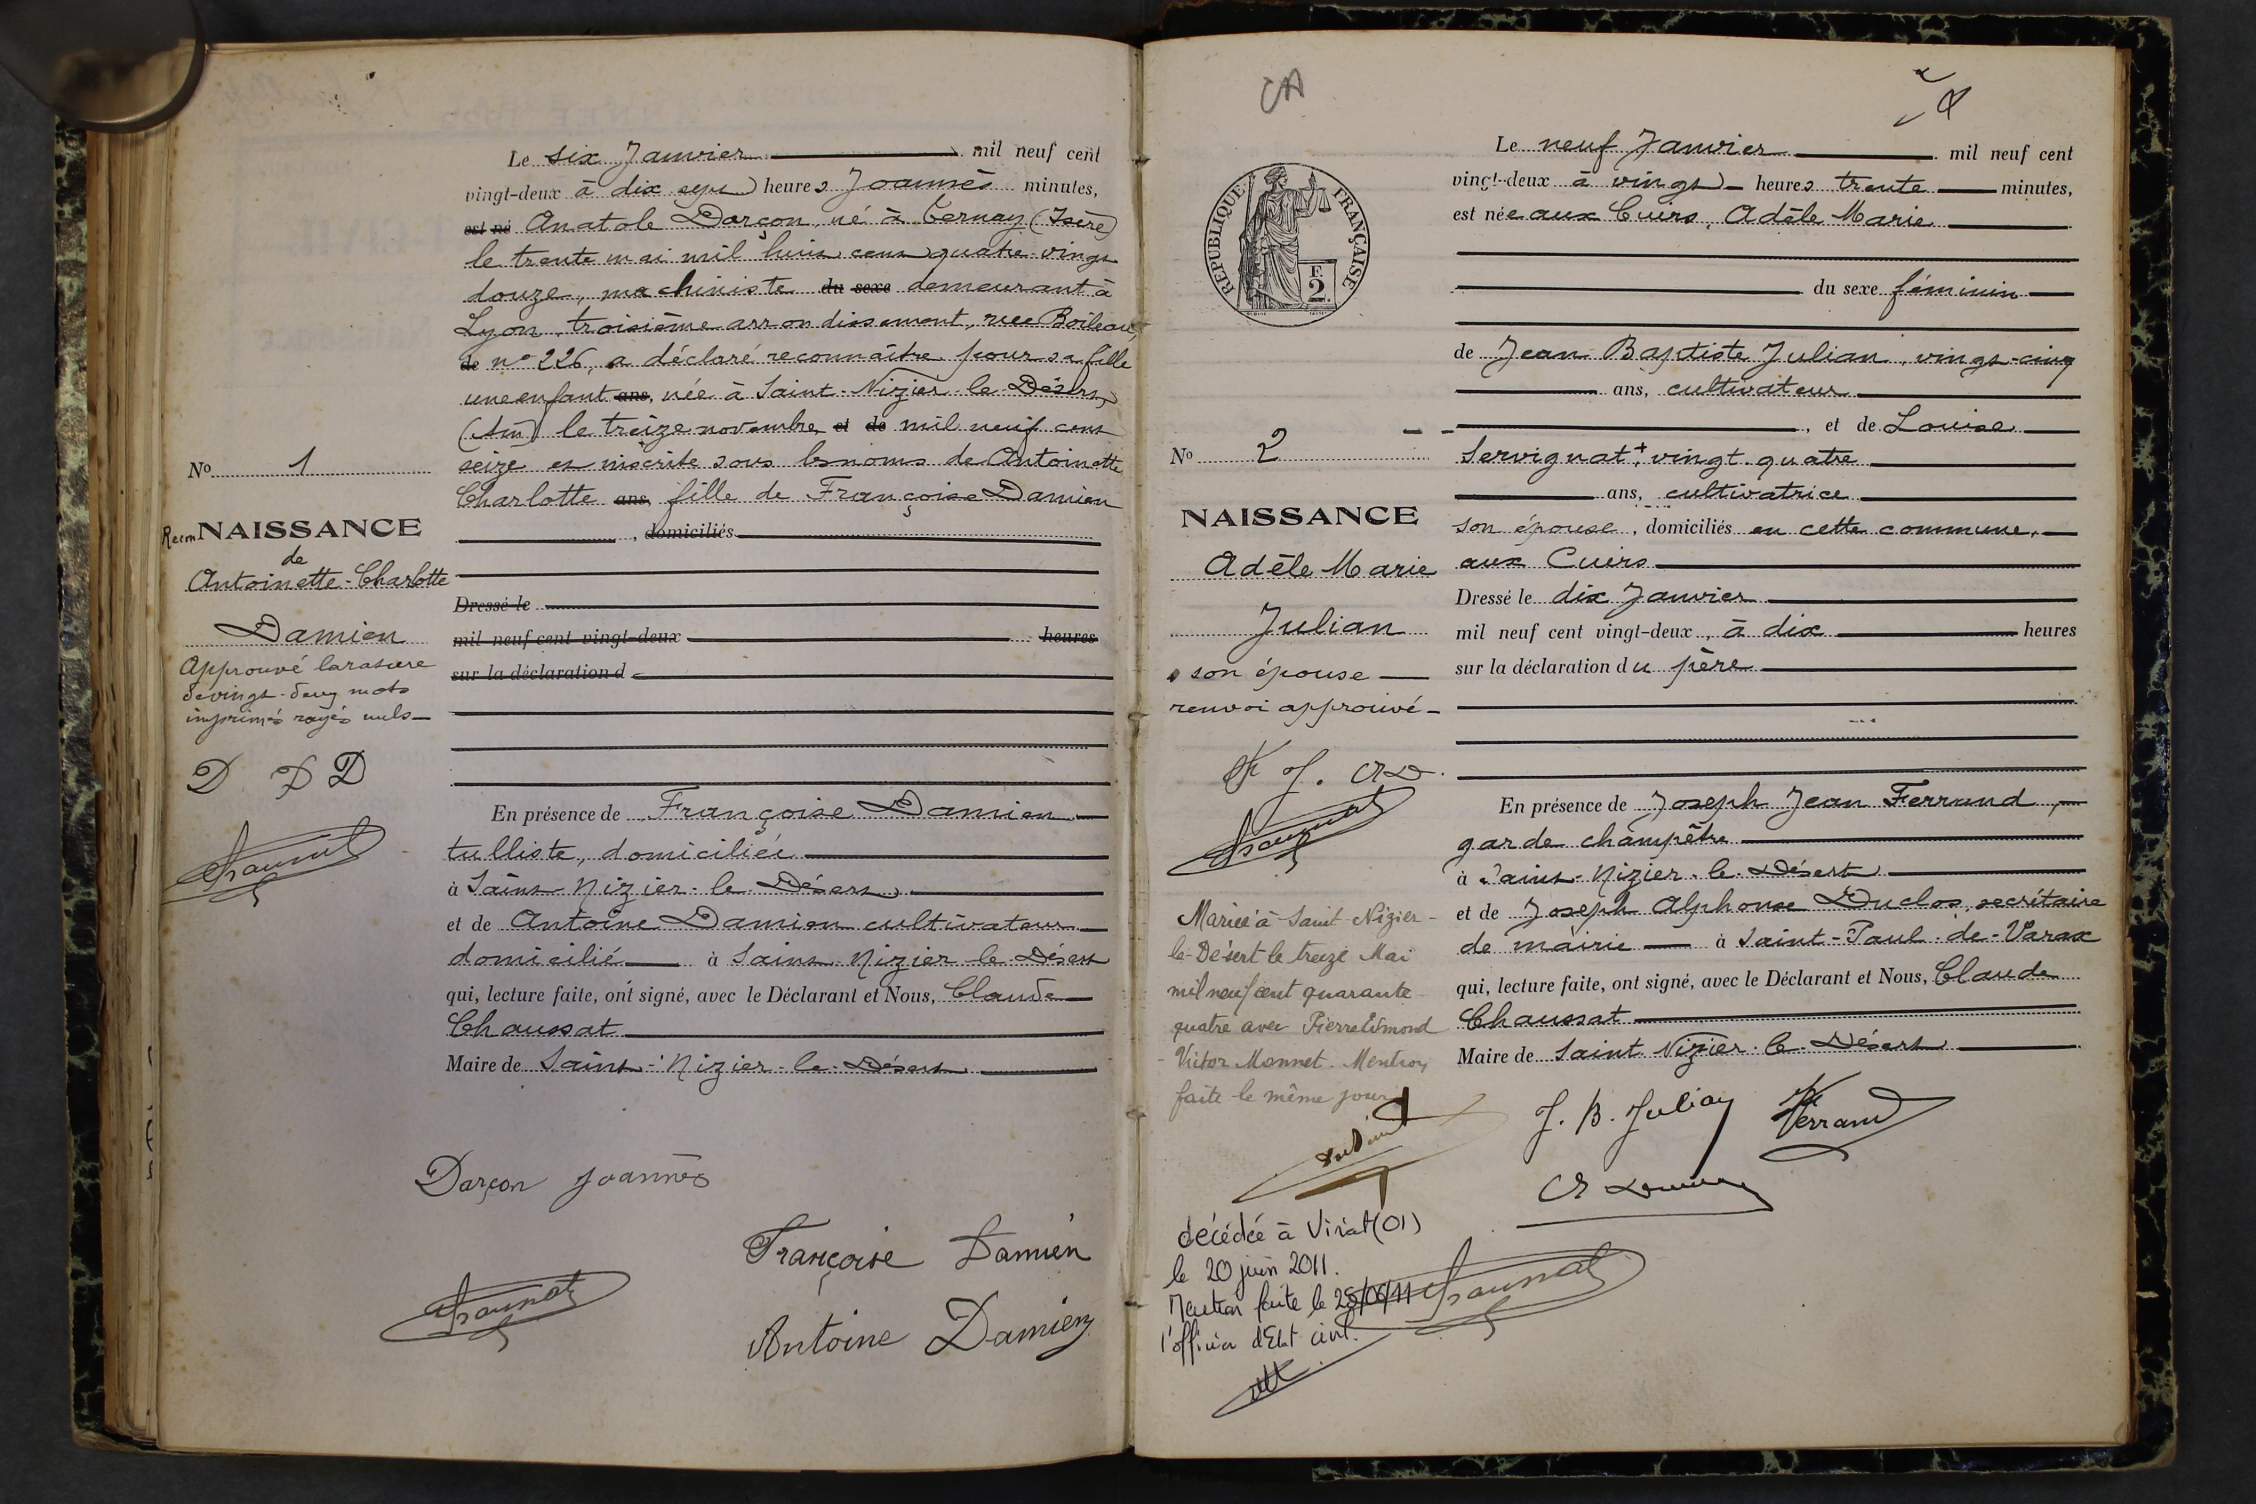 Le six Janvier mil neuf cent
vingt-deux à dix sept heures Joannès minutes,
est né Anatole Darçon, né à Ternay (Isère)
le trente mai mil huit cent quatre-vingt
douze, machiniste du sexe demeurant à
Lyon, troisième arrondissement, rue Boileau,
de n° 226, a déclaré reconnaître pour sa fille
une enfant ans, née à Saint-Nizier-le-Désert
(Ain) le treize novembre et de mil neuf cent
seize et inscrite sous les noms de Antoinette
Charlotte ans, fille de Françoise Damien
, domiciliés
Dressé le
mil neuf cent vingt-deux heures
sur la déclaration d
En présence de Françoise Damien
tulliste, domiciliée
à Saint-Nizier-le-Désert,
et de Antoine Damien cultivateur
domicilié à Saint-Nizier-le-Désert
qui, lecture faite, ont signé, avec le Déclarant et Nous, Claude
Chaussat
Maire de Saint-Nizier-le-Désert
Darçon Joannès
Françoise Damien
Antoine Damien
Chaussat
No 1
Recon NAISSANCE
de
Antoinette-Charlotte
Damien
Approuvé la rature
de vingt-deux mots
imprimés rayés nuls
D D D
Chaussat
CA
REPUBLIQUE FRANÇAISE
F.
2.
No 2
NAISSANCE
Adèle Marie
Julian
+ son épouse
renvoi approuvé
Chaussat
Mariée à Saint-Nizier-
le-Désert le treize Mai
mil neuf cent quarante
quatre avec Pierre Edmond
Victor Monnet. Mention
faite le même jour
décédée à Viriat (01)
le 20 juin 2011.
Mention faite le 28/06/11
l'officier d'Etat civil.
Le neuf Janvier mil neuf cent
vingt-deux à vingt heures trente minutes,
est née aux Cuirs, Adèle Marie
du sexe féminin
de Jean Baptiste Julian, vingt-cinq
ans, cultivateur
, et de Louise
Servignat +, vingt-quatre
ans, cultivatrice
son épouse, domiciliés en cette commune,
aux Cuirs
Dressé le dix Janvier
mil neuf cent vingt-deux, à dix heures
sur la déclaration du père
En présence de Joseph Jean Ferrand,
garde champêtre
à Saint-Nizier-le-Désert
et de Joseph Alphonse Duclos, secrétaire
de mairie à Saint-Paul-de-Varax
qui, lecture faite, ont signé, avec le Déclarant et Nous, Claude
Chaussat
Maire de Saint-Nizier-le-Désert
J. B. Julian Ferrand
Chaussat